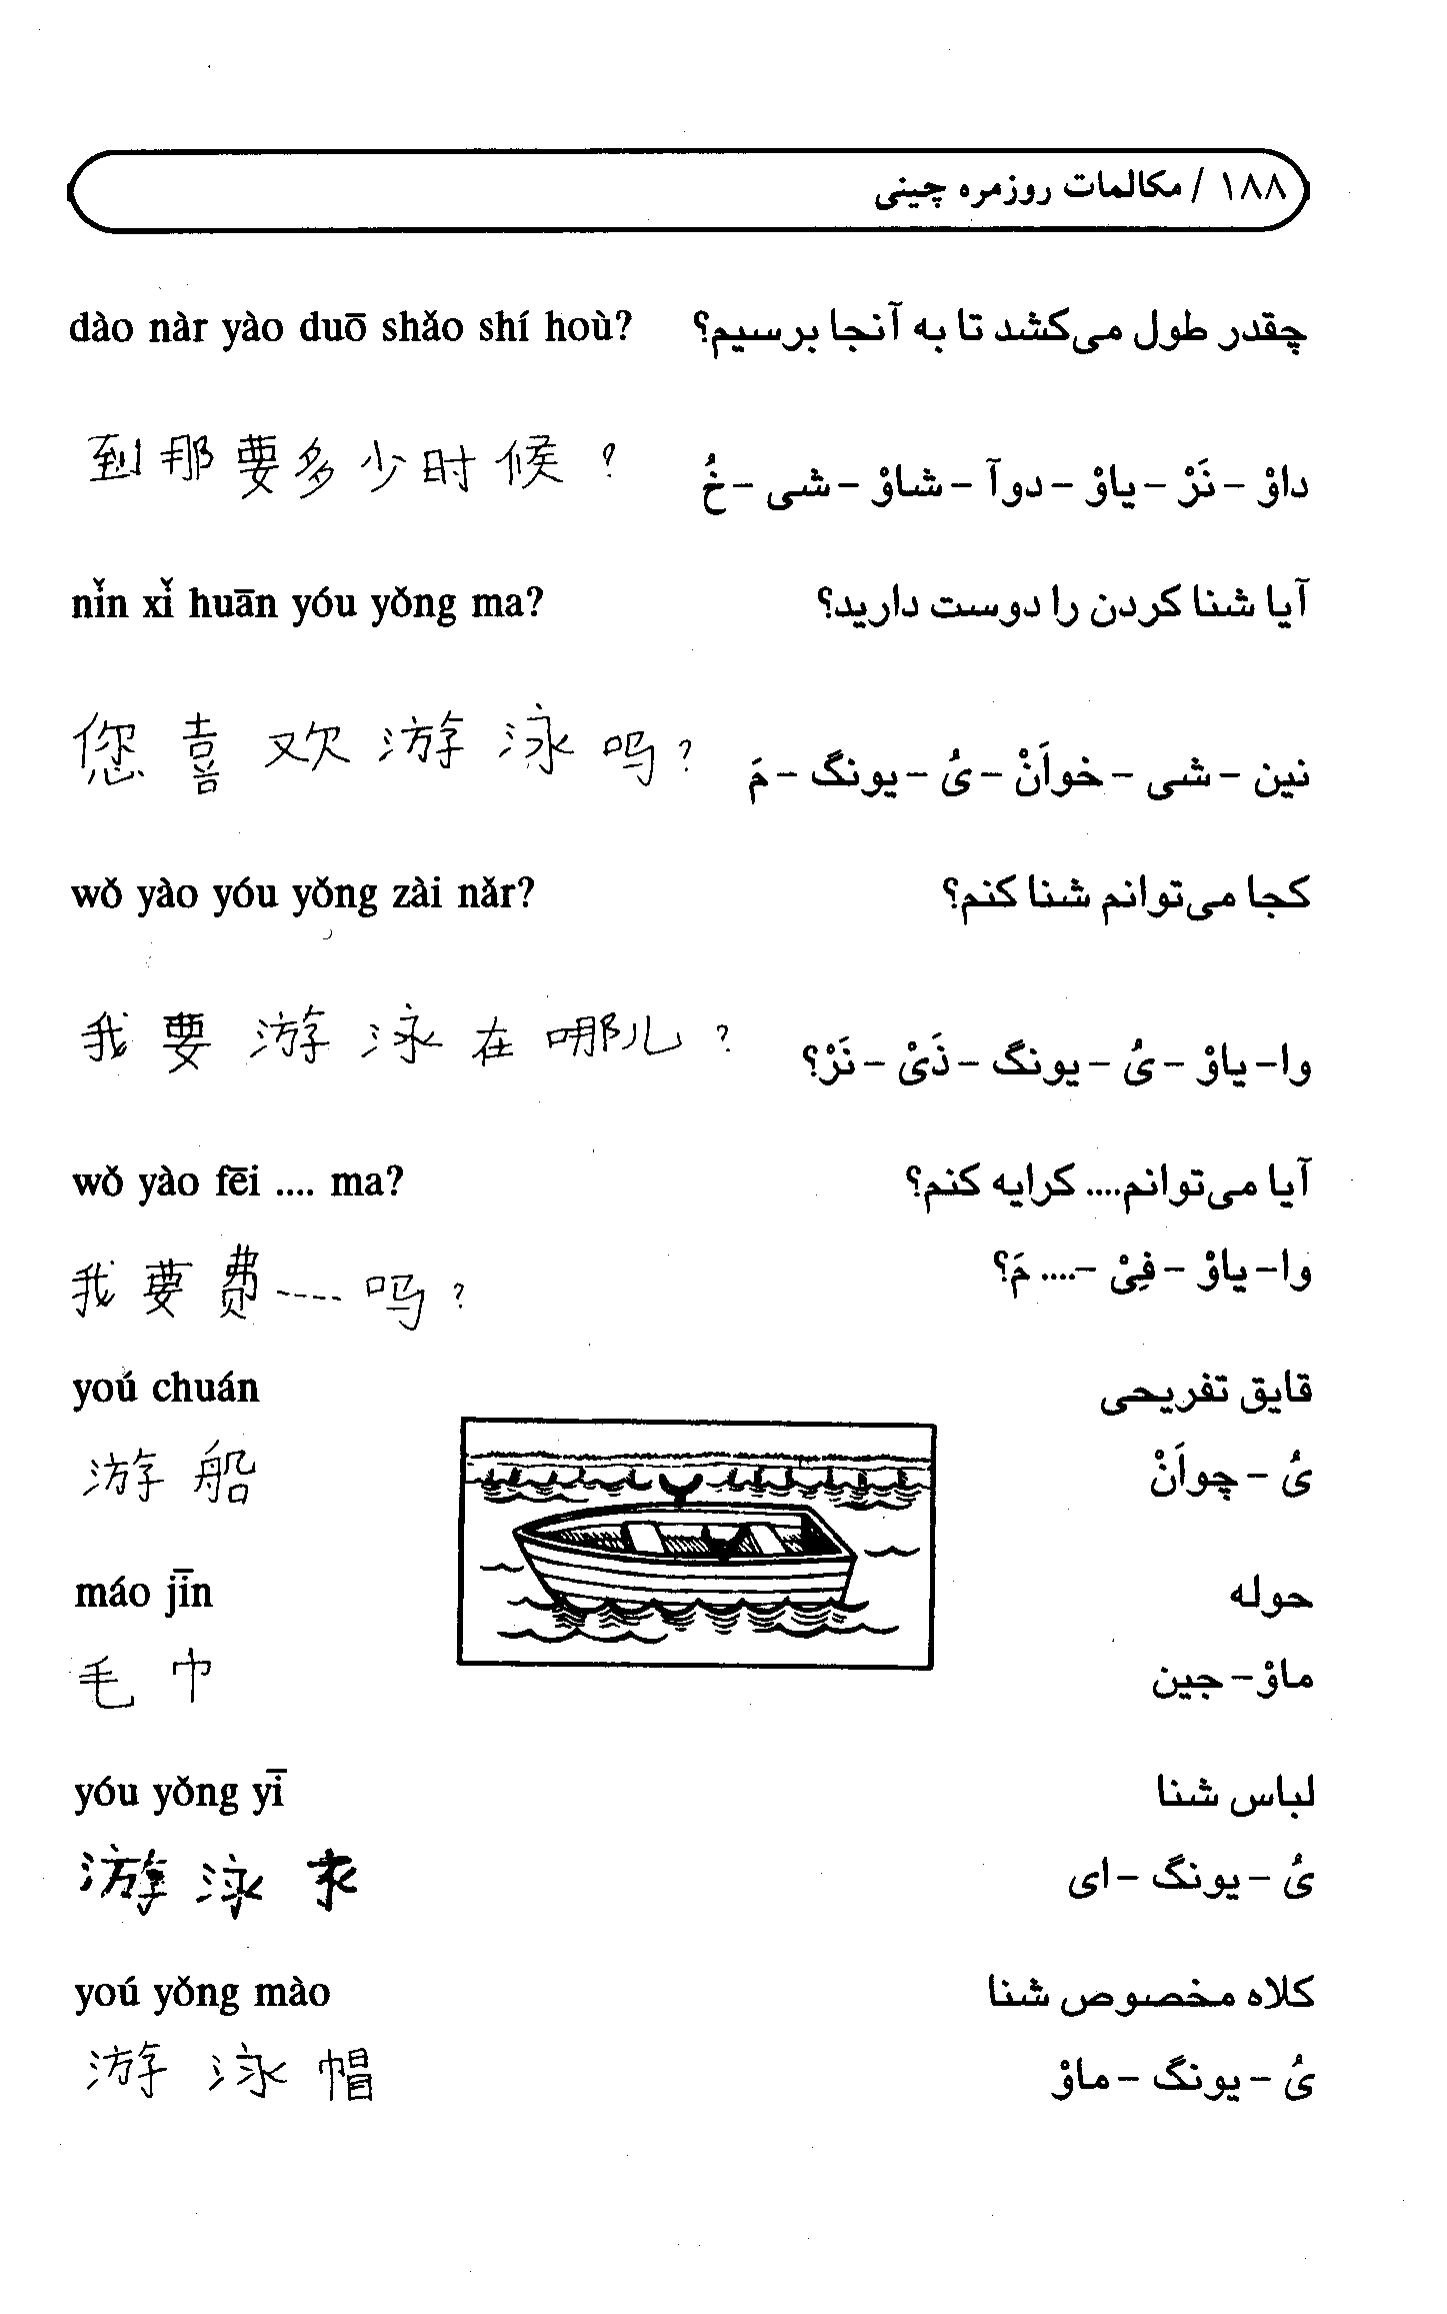 ۱۸۸ / مکالمات روزمره چینی
dào nàr yào duō shǎo shí hoù? چقدر طول می‌کشد تا به آنجا برسیم؟
到那要多少时候?
داوْ - نَرْ - یاوْ - دوآ - شاوْ - شی - خُ
nǐn xǐ huān yóu yǒng ma? آیا شنا کردن را دوست دارید؟
您喜欢游泳吗?
نین - شی - خواَنْ - یُ - یونگ - مَ
wǒ yào yóu yǒng zài nǎr? کجا می‌توانم شنا کنم؟
我要游泳在哪儿?
وا- یاوْ - یُ - یونگ - ذَیْ - نَرْ؟
wǒ yào fēi .... ma? آیا می‌توانم.... کرایه کنم؟
وا- یاوْ - فِیْ -.... مَ؟
我要费----吗?
yoú chuán قایق تفریحی
游船 یُ - چواَنْ
máo jīn حوله
毛巾 ماوْ- جین
yóu yǒng yī لباس شنا
游泳衣 یُ - یونگ - ای
yoú yǒng mào کلاه مخصوص شنا
游泳帽 یُ - یونگ - ماوْ